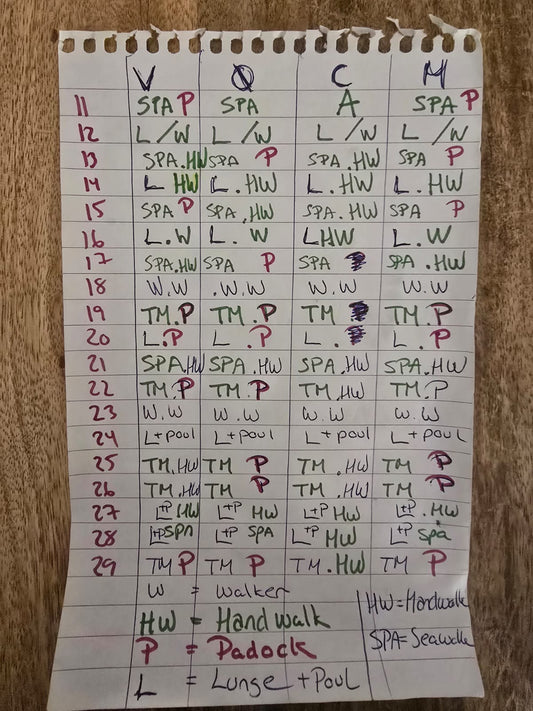 V Q C M
11 SPA P SPA A SPA P
12 L/W L/W L/W L/W
13 SPA.HW SPA P SPA.HW SPA P
14 L HW L.HW L.HW L.HW
15 SPA P SPA.HW SPA.HW SPA P
16 L.W L.W LHW L.W
17 SPA.HW SPA P SPA SPA.HW
18 W.W .W.W W.W W.W
19 TM.P TM.P TM TM.P
20 L.P L.P L. L.P
21 SPA.HW SPA.HW SPA.HW SPA.HW
22 TM.P TM.P TM.HW TM.P
23 W.W W.W W.W W.W
24 L+poul L+poul L+poul L+poul
25 TM.HW TM P TM.HW TM P
26 TM.HW TM P TM.HW TM P
27 L+P HW L+P HW L+P HW L+P.HW
28 L+P SPA L+P SPA L+P HW L+P Spa
29 TM P TM P TM.HW TM P
W = Walker
HW = Hand walk
P = Padock
L = Lunge + Poul
HW=Handwalk
SPA=Seawalk